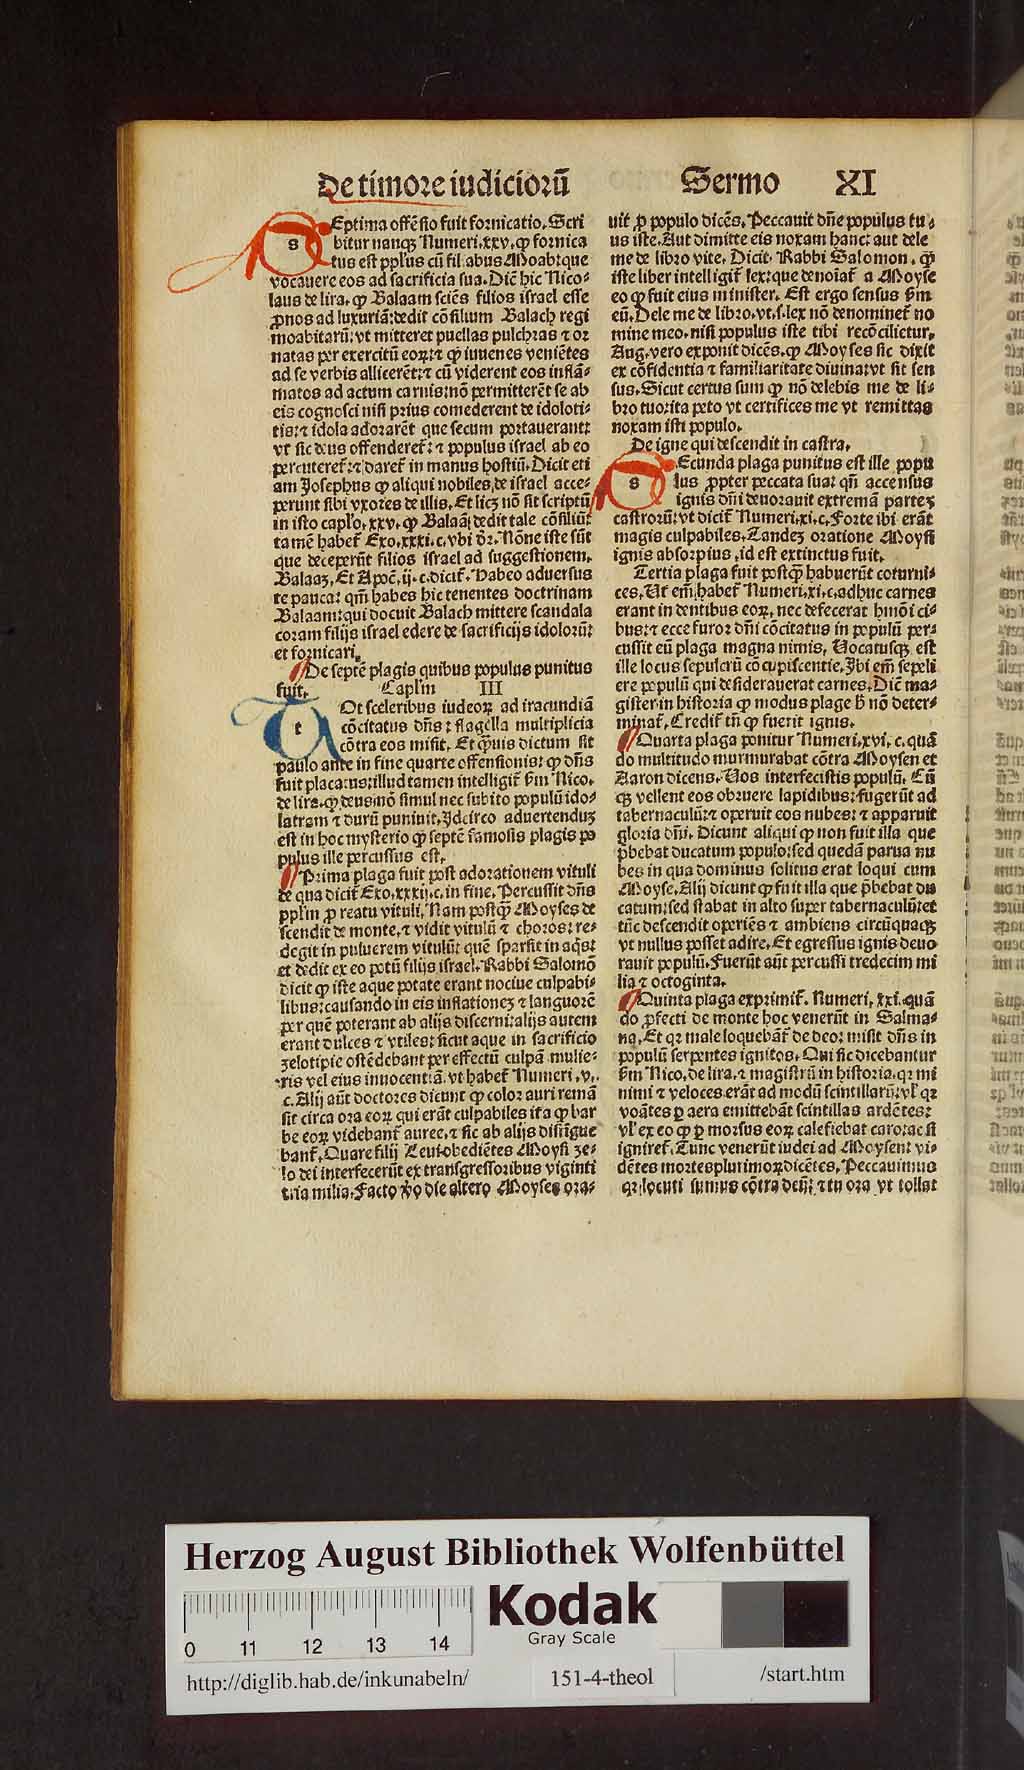 De timore iudiciorū Sermo XI
Septima offēsio fuit fornicatio. Scri
bitur nanqꝫ Numeri. xxv. ꝙ fornica
tus est ppl'us cū fil'abus Moab: que
vocauere eos ad sacrificia sua. Diē hic Nico-
laus de lira. ꝙ Balaam sciēs filios israel esse
ꝓnos ad luxuriā: dedit cōsilium Balach regi
moabitarū: vt mitteret puellas pulchras ⁊ or
natas per exercitū eoꝝ: ⁊ ꝙ iuuenes veniētes
ad se verbis allicerēt: ⁊ cū viderent eos inflā-
matos ad actum carnis: nō permitterēt se ab
eis cognosci nisi prius comederent de idoloti-
tis: ⁊ idola adorarēt que secum portauerant:
vt sic deus offenderet᷑: ⁊ populus israel ab eo
percuteret᷑: ⁊ daret᷑ in manus hostiū. Dicit eti
am Josephus ꝙ aliqui nobiles de israel acce-
perunt sibi vxores de illis. Et licꝫ nō sit scriptū
in isto capl'o. xxv. ꝙ Balaā dedit tale cōsiliū:
tamē habet᷑ Exo. xxxi. c. vbi dr̄. Nōne iste sūt
que deceperūt filios israel ad suggestionem.
Balaaꝫ. Et Apoc̄. ij. c. dicit᷑. Habeo aduersus
te pauca: qm̄ habes hic tenentes doctrinam
Balaam: qui docuit Balach mittere scandala
coram filijs israel edere de sacrificijs idolorū:
et fornicari.
De septē plagis quibus populus punitus
fuit. Caplm̄ III
Tot sceleribus iudeoꝝ ad iracundiā
cōcitatus dn̄s: flagella multiplicia
cōtra eos misit. Et q̄uis dictum sit
paulo ante in fine quarte offensionis: ꝙ dn̄s
fuit placatus: illud tamen intelligit᷑ ẜm Nico.
de lira. ꝙ deus nō simul nec subito populū ido-
latram ⁊ durū puniuit. Idcirco aduertenduꝫ
est in hoc mysterio ꝙ septē famosis plagis po
pulus ille percussus est.
Prima plaga fuit post adorationem vituli
de qua dicit᷑ Exo. xxxij. c. in fine. Percussit dn̄s
ppl'm ꝓ reatu vituli. Nam postꝙ̄ Moyses de
scendit de monte. ⁊ vidit vitulū ⁊ choros: re-
degit in puluerem vitulū: quē sparsit in aqs:
et dedit ex eo potū filijs israel. Rabbi Salomō
dicit ꝙ iste aque potate erant nociue culpabi-
libus: causando in eis inflationeꝫ ⁊ languorē
per quē poterant ab alijs discerni: alijs autem
erant dulces ⁊ vtiles: sicut aque in sacrificio
zelotipie ostēdebant per effectū culpā mulie-
ris vel eius innocentiā. vt habet᷑ Numeri. v.
c. Alij aūt doctores dicunt ꝙ color auri remā
sit circa ora eoꝝ qui erāt culpabiles ita ꝙ bar
be eoꝝ videbant᷑ auree. ⁊ sic ab alijs distīgue
bant᷑. Quare filij Leui obediētes Moysi ze-
lo dei interfecerūt ex transgressoribus viginti
tria milia. Facto v̄o die altero Moyses ora-
uit ꝓ populo dicēs. Peccauit dn̄e populus tu-
us iste. Aut dimitte eis noxam hanc: aut dele
me de libro vite. Dicit Rabbi Salomon. ꝙ
iste liber intelligit᷑ lex: que denoīat᷑ a Moyse
eo ꝙ fuit eius minister. Est ergo sensus ẜm
eū. Dele me de libro. vt. s. lex nō denominet᷑ no
mine meo. nisi populus iste tibi recōcilietur.
Aug. vero exponit dicēs. ꝙ Moyses sic dixit
ex cōfidentia ⁊ familiaritate diuina: vt sit sen
sus. Sicut certus sum ꝙ nō delebis me de li-
bro tuo: ita peto vt certifices me vt remittas
noxam isti populo.
De igne qui descendit in castra.
Secunda plaga punitus est ille popu
lus ꝓpter peccata sua: qn̄ accensus
ignis dn̄i deuorauit extremā parteꝫ
castrorū: vt dicit᷑ Numeri. xi. c. Forte ibi erāt
magis culpabiles. Tandeꝫ oratione Moysi
ignis absorptus. id est extinctus fuit.
Tertia plaga fuit postꝙ̄ habuerūt coturni-
ces. Ut em̄ habet᷑ Numeri. xi. c. adhuc carnes
erant in dentibus eoꝝ. nec defecerat hmōi ci-
bus: ⁊ ecce furor dn̄i cōcitatus in populū per-
cussit eū plaga magna nimis. Uocatusqꝫ est
ille locus sepulcrū cōcupiscentie. Ibi em̄ sepeli
ere populū qui desiderauerat carnes. Diē ma-
gister in historia ꝙ modus plage h̄ nō deter-
minat᷑. Credit᷑ tn̄ ꝙ fuerit ignis.
Quarta plaga ponitur Numeri. xvi. c. quā
do multitudo murmurabat cōtra Moysen et
Aaron dicens. Uos interfecistis populū. Cū
qꝫ vellent eos obruere lapidibus: fugerūt ad
tabernaculū: ⁊ operuit eos nubes: ⁊ apparuit
gloria dn̄i. Dicunt aliqui ꝙ non fuit illa que
p̄bebat ducatum populo: sed quedā parua nu
bes in qua dominus solitus erat loqui cum
Moyse. Alij dicunt ꝙ fuit illa que p̄bebat du
catum: sed stabat in alto super tabernaculū: et
tūc descendit operiēs ⁊ ambiens circūquaqꝫ
vt nullus posset adire. Et egressus ignis deuo
rauit populū. Fuerūt aūt percussi tredecim mi
lia ⁊ octoginta.
Quinta plaga exprimit᷑. Numeri. xxi. quā
do ꝓfecti de monte hoc venerūt in Salma-
na. Et qꝛ male loquebāt᷑ de deo: misit dn̄s in
populū serpentes ignitos. Qui sic dicebantur
ẜm Nico. de lira. ⁊ magistrū in historia. qꝛ mi
nimi ⁊ veloces erāt ad modū scintillarū: vl' qꝛ
voātes ꝑ aera emittebāt scintillas ardētes:
vl' ex eo ꝙ ꝑ morsus eoꝝ calefiebat caro: ac si
igniret᷑. Tunc venerūt iudei ad Moysen: vi-
dētes mortes plurimoꝝ dicētes. Peccauimus
qꝛ locuti sumus cōtra deū: ⁊ tu ora vt tollat
Herzog August Bibliothek Wolfenbüttel
Kodak
Gray Scale
0 11 12 13 14
http://diglib.hab.de/inkunabeln/ 151-4-theol /start.htm